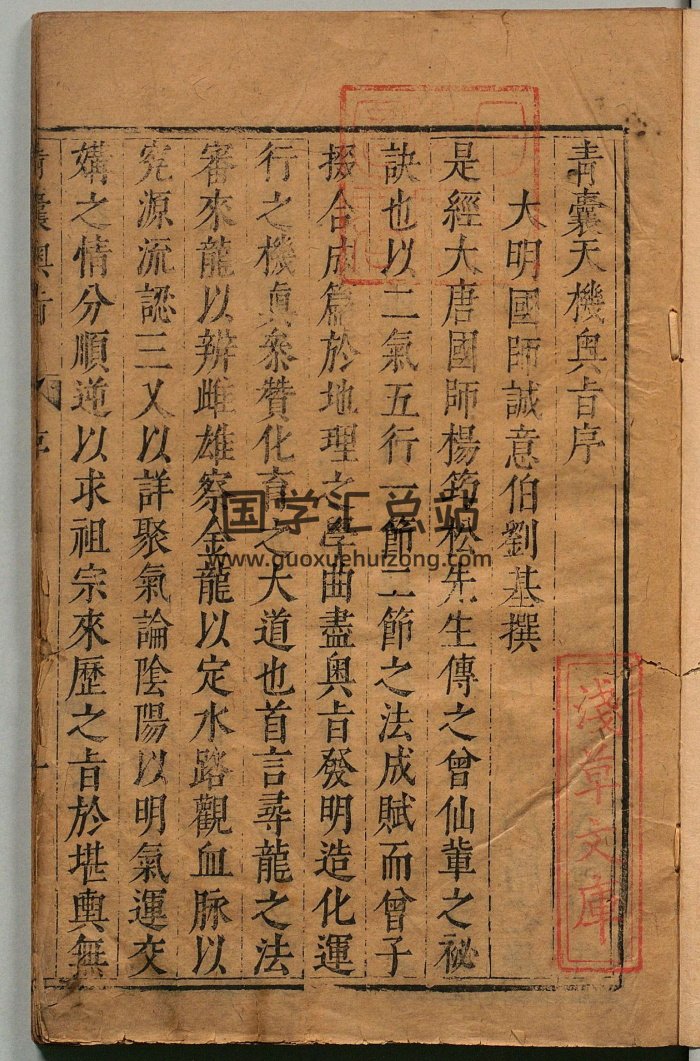 青囊天機奧旨序
大明國師誠意伯劉基撰
是經大唐國師楊筠松先生傳之曾仙軰之祕
訣也以二氣五行一節二節之法成賦而曾子
掇合成篇於地理之學曲盡奧旨發明造化運
行之機眞叅贊化育之大道也首言尋龍之法
審來龍以辨雌雄察金龍以定水路觀血脉以
究源流認三叉以詳聚氣論陰陽以明氣運交
媾之情分順逆以求祖宗來歷之旨於堪輿無
囊奧旨
序
一
淺草文庫
国学汇总站
www.guoxuehuizong.com